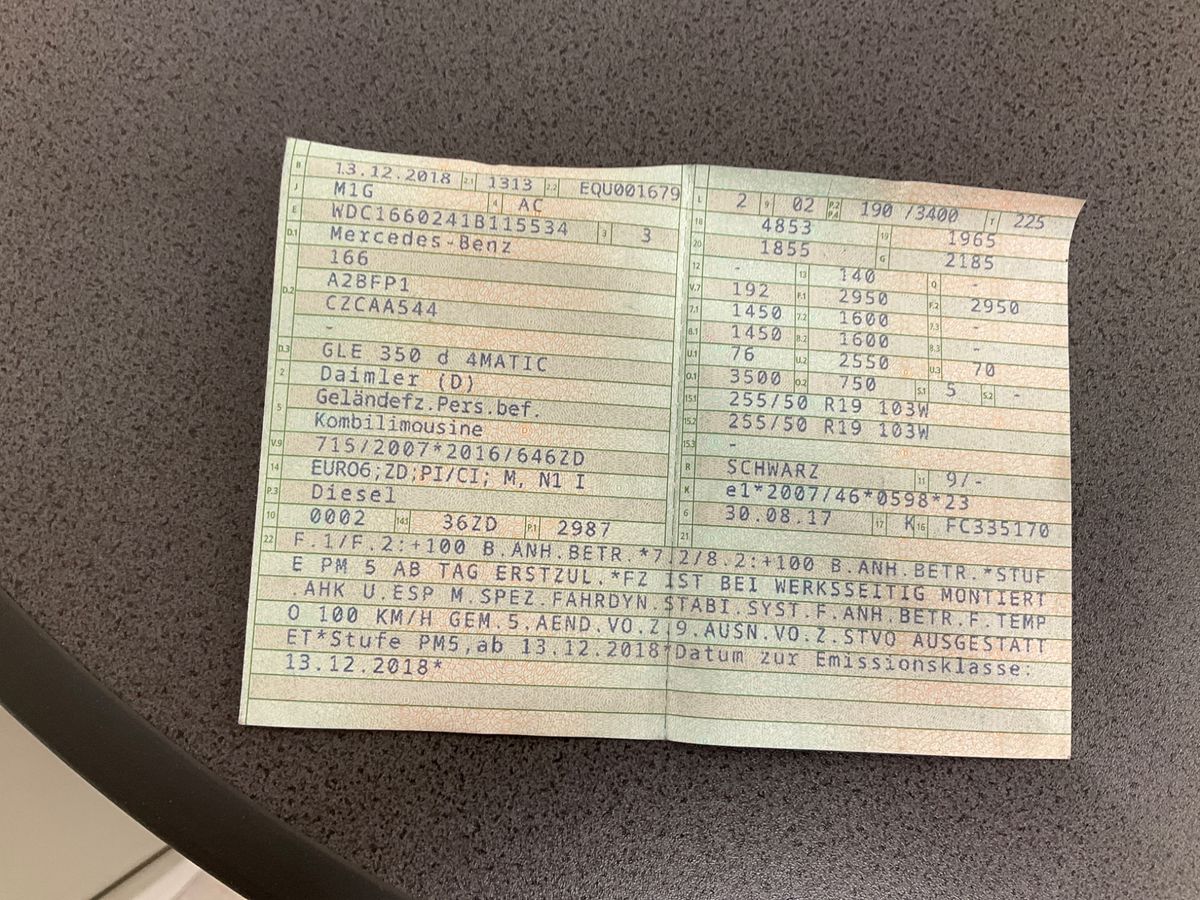 B 13.12.2018 2.1 1313 2.2 EQU001679
J M1G 4 AC
E WDC1660241B115534 3 3
D.1 Mercedes-Benz
166
D.2 A2BFP1
CZCAA544
-
D.3 GLE 350 d 4MATIC
2 Daimler (D)
5 Geländefz.Pers.bef.
Kombilimousine
V.9 715/2007*2016/646ZD
14 EURO6;ZD;PI/CI; M, N1 I
P.3 Diesel
10 0002 14.1 36ZD P.1 2987
L 2 9 02 P.2 P.4 190 /3400 T 225
18 4853 19 1965
20 1855 G 2185
12 - 13 140 Q -
V.7 192 F.1 2950 F.2 2950
7.1 1450 7.2 1600 7.3 -
8.1 1450 8.2 1600 8.3 -
U.1 76 U.2 2550 U.3 70
O.1 3500 O.2 750 S.1 5 S.2 -
15.1 255/50 R19 103W
15.2 255/50 R19 103W
15.3 -
R SCHWARZ 11 9/-
K e1*2007/46*0598*23
6 30.08.17 17 K 16 FC335170
21
22 F.1/F.2:+100 B.ANH.BETR.*7.2/8.2:+100 B.ANH.BETR.*STUF
E PM 5 AB TAG ERSTZUL.*FZ IST BEI WERKSSEITIG MONTIERT
.AHK U.ESP M.SPEZ.FAHRDYN.STABI.SYST.F.ANH.BETR.F.TEMP
O 100 KM/H GEM.5.AEND.VO.Z.9.AUSN.VO.Z.STVO AUSGESTATT
ET*Stufe PM5,ab 13.12.2018*Datum zur Emissionsklasse:
13.12.2018*